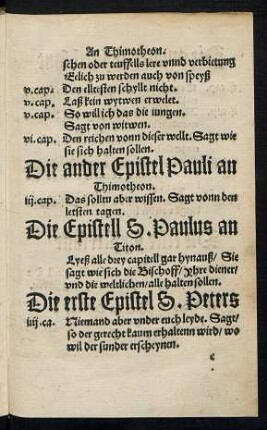 An Thimotheon.
schen oder teuffells lere vnnd verbietung
Eelich zu werden auch von speyß
v.cap. Den elltesten schyllt nicht.
v.cap. Laß kein wytwen erwelet.
v.cap. So will ich das die iungen.
Sagt von witwen.
vi.cap. Den reichen vonn dieser wellt. Sagt wie
sie sich halten sollen.
Die ander Epistel Pauli an
Thimotheon.
iij.cap. Das sollin aber wissen. Sagt vonn den
letsten tagen.
Die Epistell S. Paulus an
Titon.
Lyeß alle drey capitell gar hynauß/ Sie
sage wie sich die Bischoff/ yhre diener/
vnd die weltlichen/ alle halten sollen.
Die erste Epistel S. Peters
iiij.ca. Niemand aber vnder euch leyde. Sagt/
so der gerecht kaum erhaltenn wird/ wo
wil der sunder erscheynen.
c